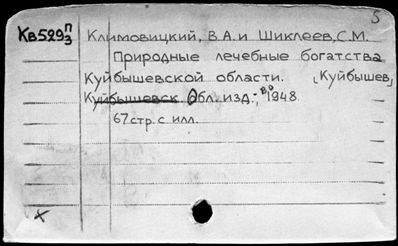 5
Кв529 П/3 Климовицкий, В.А. и Шиклеев, С.М.
Природные лечебные богатства
Куйбышевской области. [Куйбышев,
Куйбышевск. Обл. изд-во, 1948.
67 стр. с илл.